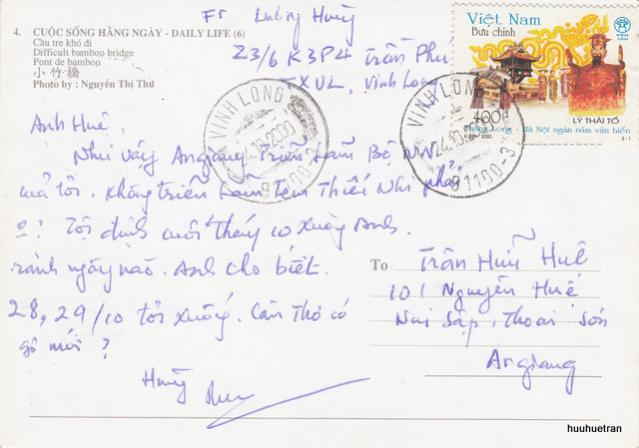 4. CUỘC SỐNG HÀNG NGÀY - DAILY LIFE (6)
Cầu tre khó đi
Difficult bamboo bridge
Pont de bamboo
小竹橋
Photo by : Nguyễn Thị Thú
Fr Lương Hùng
Z3/6 K3P4 Trần Phú
TXVL, Vĩnh Long
Việt Nam
Bưu chính
LÝ THÁI TỔ
400đ
Thăng Long - Hà Nội ngàn năm văn hiến
3-1
VINH LONG
24.10.2000
91100-3
VINH LONG
24.10
91100-3
Anh Huệ,
Như vậy Angiang triển lãm Bộ
mà tôi. Không triển lãm Tem Thiếu Nhi phải
0? Tôi định cuối tháng 10 xuống Anh.
rảnh ngày nào. Anh cho biết.
28, 29/10 tôi xuống. Cần Thơ có
gì mới ?
Hùng
To Trần Hữu Huệ
101 Nguyễn Huệ
Núi Sập, Thoại Sơn
An giang
huuhuetran